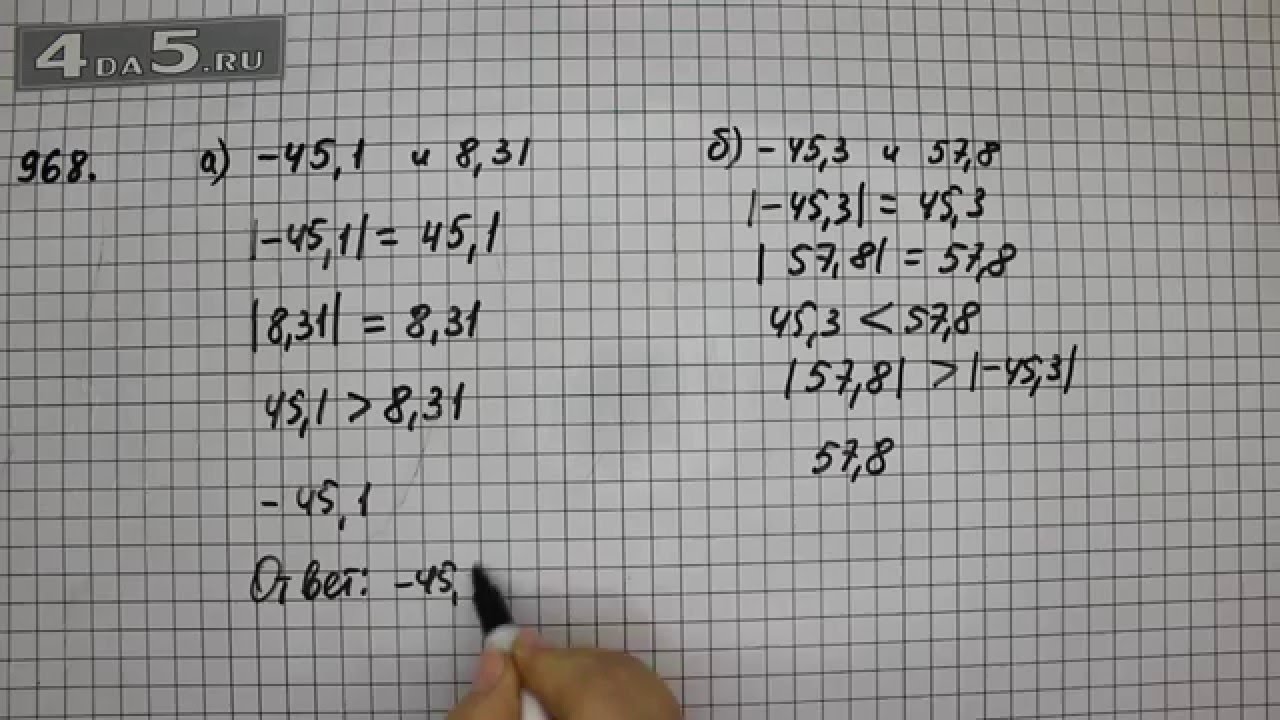 4DA5.RU
968.
а) -45,1 и 8,31
|-45,1| = 45,1
|8,31| = 8,31
45,1 > 8,31
-45,1
Ответ: -45,
б) -45,3 и 57,8
|-45,3| = 45,3
|57,8| = 57,8
45,3 < 57,8
|57,8| > |-45,3|
57,8